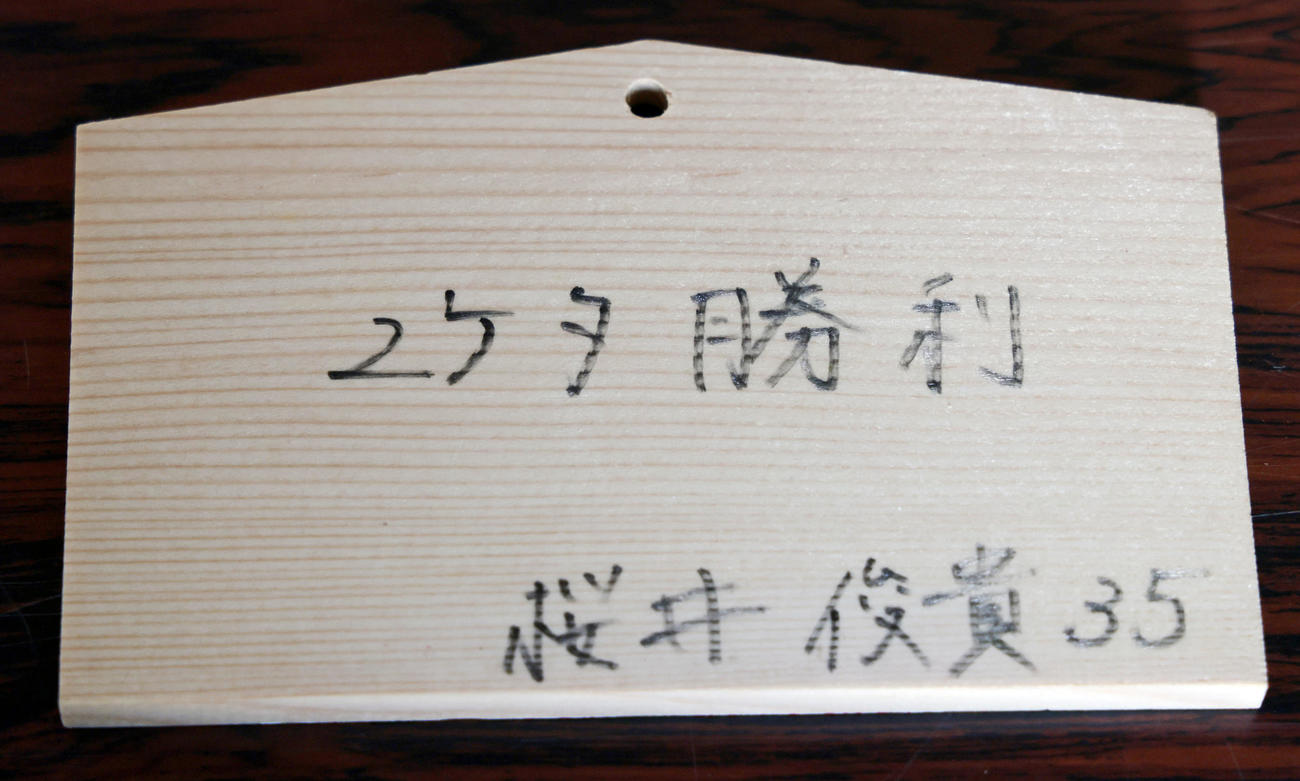 2ケタ勝利
桜井俊貴35